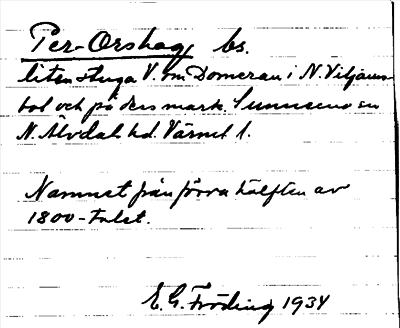 Per-Orshag, bs.
liten stuga V. om Domerau i N. Viljams-
bol och på ders mark. Sunnemo sn
N. Älvdals hd. Värml l.
Namnet från förra hälften av
1800-talet.
E. G. Fröding 1934